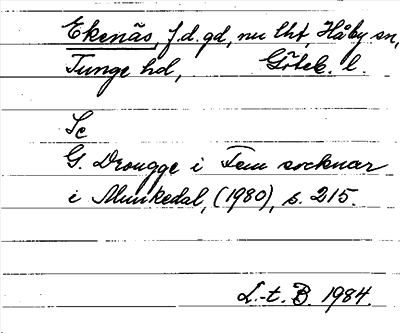 Ekenäs, f.d. gd, nu lht, Håby sn,
Tunge hd, Göteb. l.
Se
G. Drougge i Fem socknar
i Munkedal, (1980), s. 215.
L.-t. B. 1984.